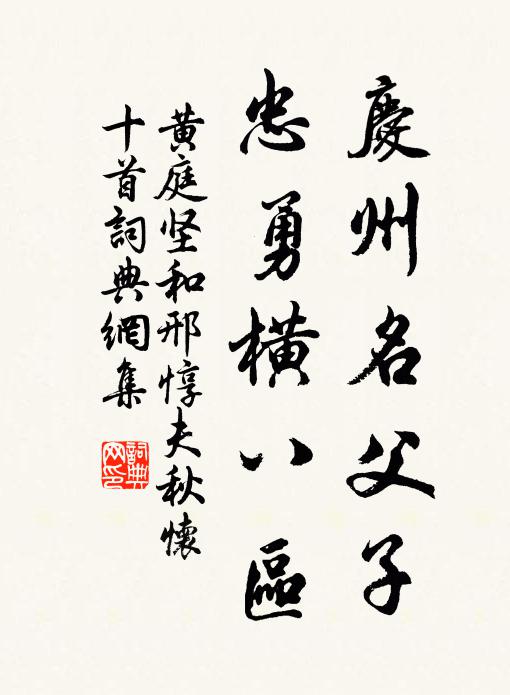 慶州名父子
忠勇橫八區
黃庭坚和邢惇夫秋懷
十首詞典網集
詞典
网印